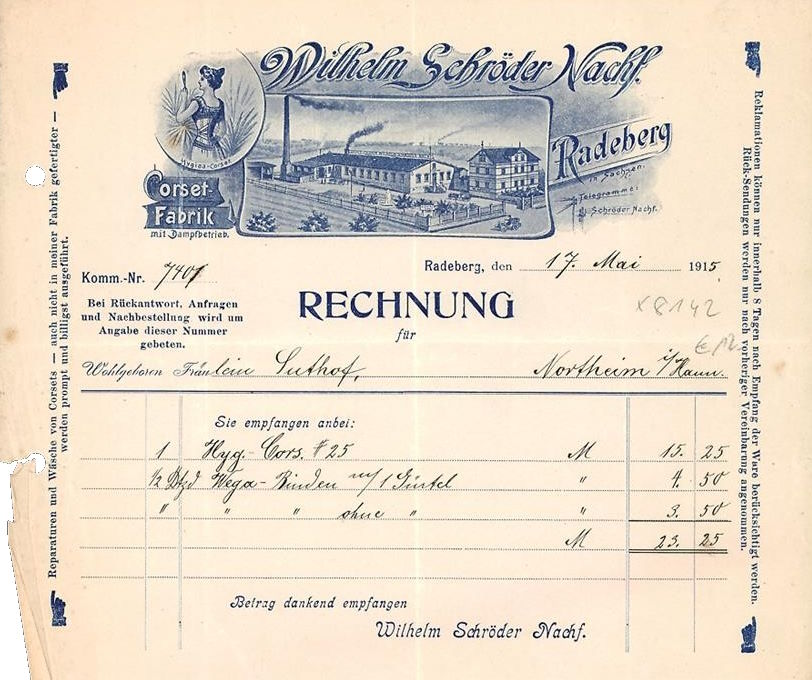 Wilhelm Schröder Nachf.
Radeberg
in Sachsen.
Telegramme:
Schröder Nachf.
Hygiea-Corset
Corset-
Fabrik
mit Dampfbetrieb.
Reparaturen und Wäsche von Corsets — auch nicht in meiner Fabrik gefertigter —
werden prompt und billigst ausgeführt.
Reklamationen können nur innerhalb 8 Tagen nach Empfang der Ware berücksichtigt werden.
Rück-Sendungen werden nur nach vorheriger Vereinbarung angenommen.
Komm.-Nr. 7401
Radeberg, den 17. Mai 1915
Bei Rückantwort, Anfragen
und Nachbestellung wird um
Angabe dieser Nummer
gebeten.
RECHNUNG
für
x 8142
€ 12.
Wohlgeboren Fräulein Suthof, Northeim i/Hann.
Sie empfangen anbei:
1 Hyg.- Cors. # 25 M 15. 25
1/2 Dtzd Wega- Binden m/1 Gürtel " 4. 50
" " " ohne " " 3. 50
M 23. 25
Betrag dankend empfangen
Wilhelm Schröder Nachf.